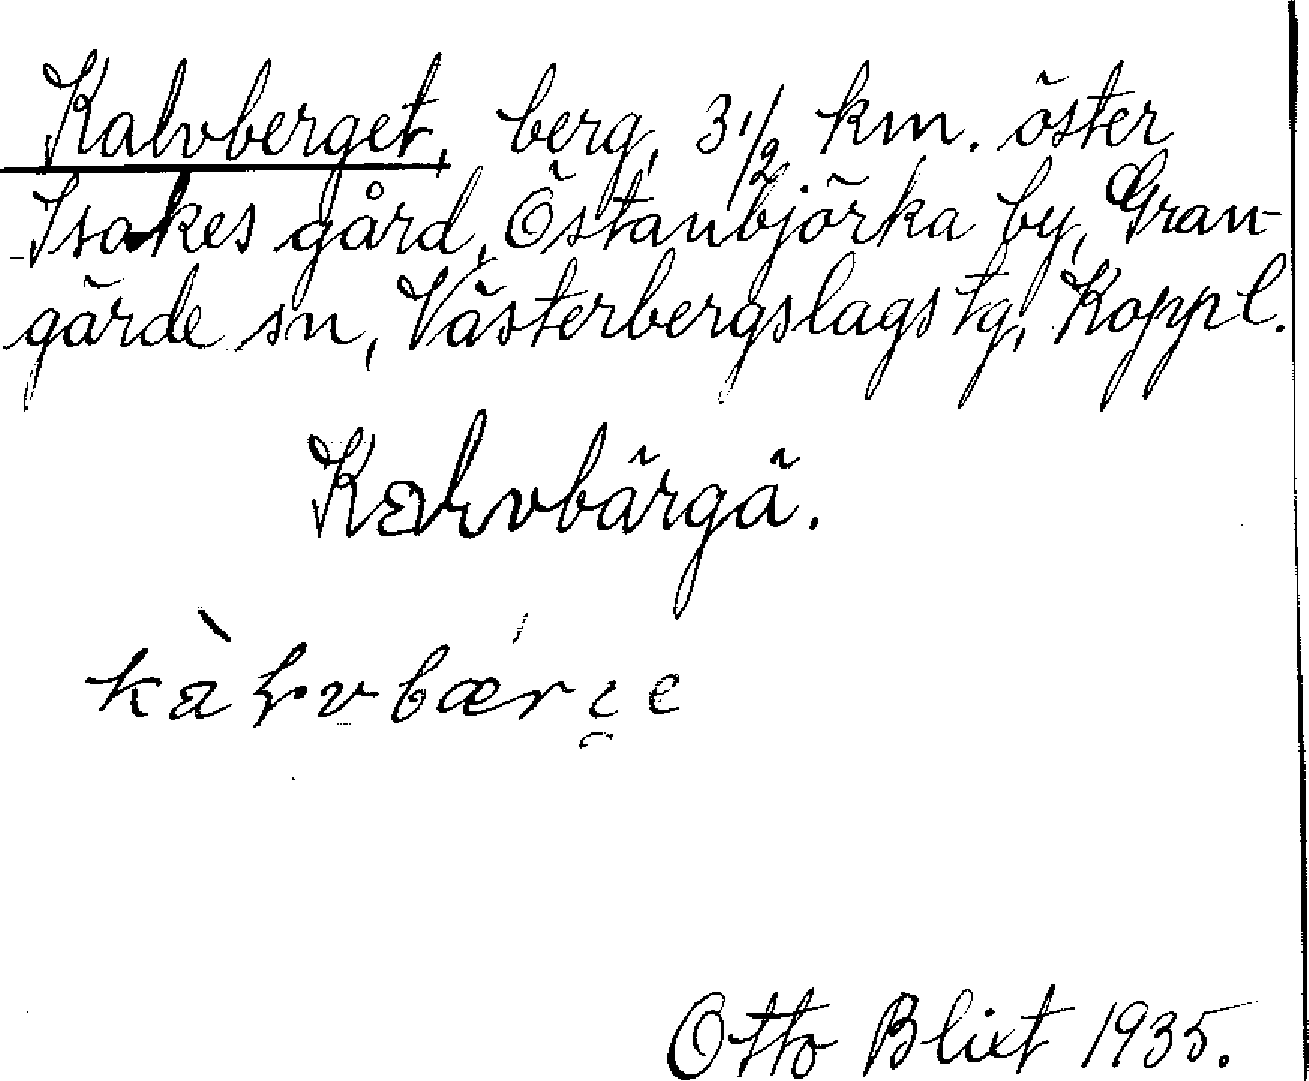 Kalvberget, berg, 3 1/2 km. öster
Isakes gård, Östanbjörka by, Gran-
gärde sn, Västerbergslags tg, Koppl.
Kalvbärgä.
Otto Blixt 1935.